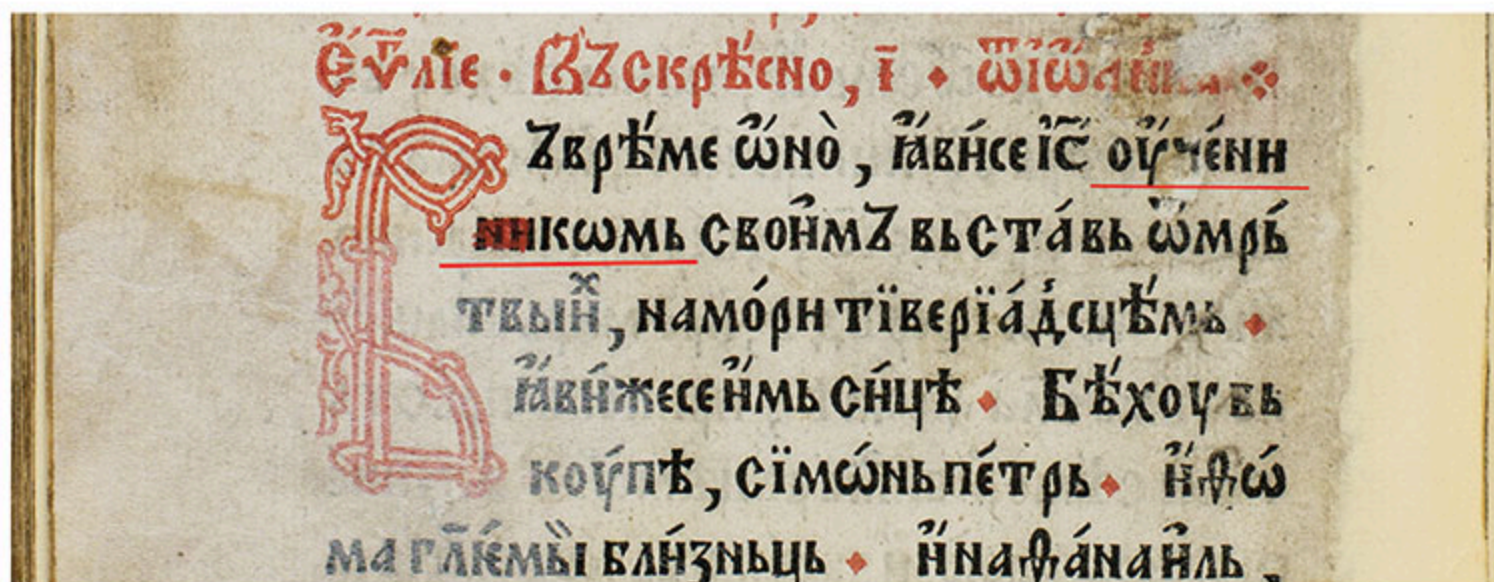 Е҆ѵⷢ҇лїе · Въскрѣ́сно, і҃ · ѿіѡ҆а́нна
Въврѣ́ме ѡ҆́нѡ̀, ꙗ҆ви́се і҃с оу҆че́ни
никѡмь свои҆мъ вьста́вь ѿмрь́
твыи҆х, намо́ри тїверїа́дсцѣ́мь
ꙗ҆ви́жесе и҆мь си́цѣ Бѣ́хоу вь
коу́пѣ, сїмѡ́нь пе́трь и҆ѳѡ́
ма гл҃ѥ́мыи бли́зньць и҆наѳа́наи҆ль,